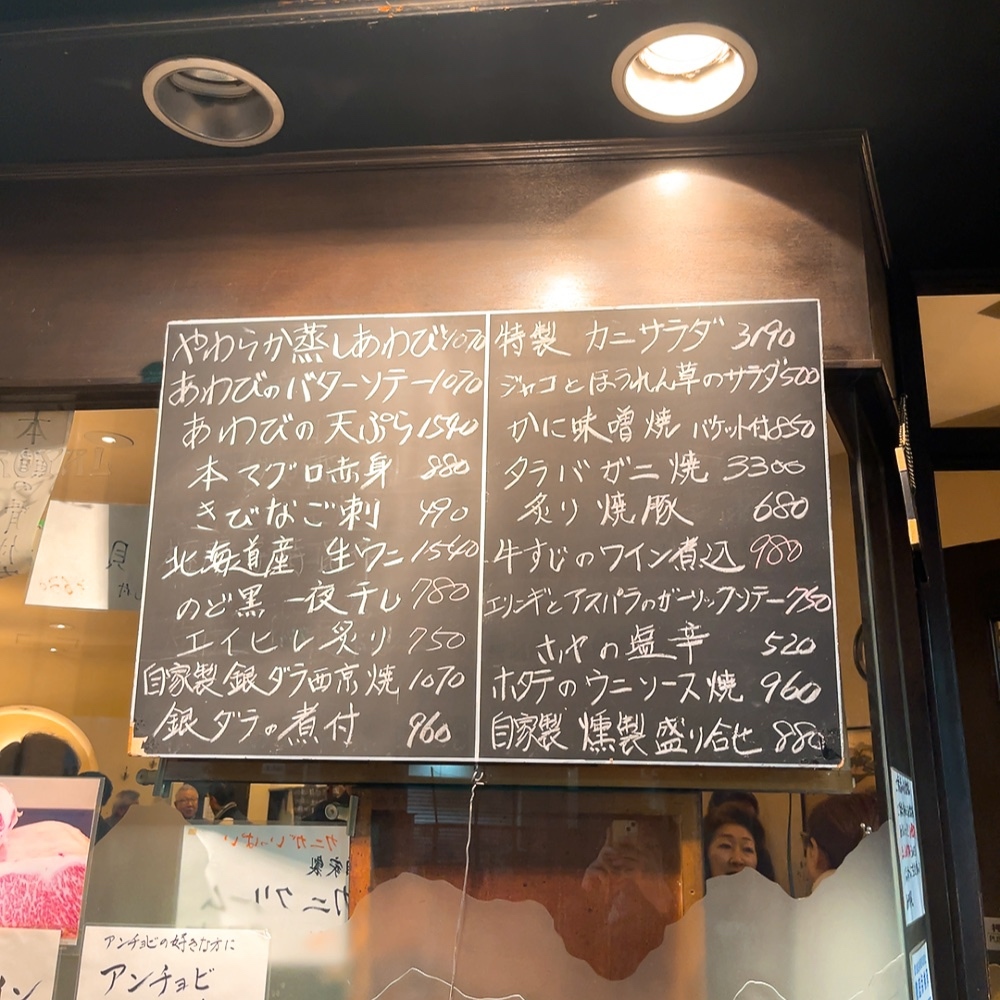 やわらか蒸しあわび 1070
あわびのバターソテー 1070
あわびの天ぷら 1540
本マグロ赤身 880
きびなご刺 490
北海道産 生ウニ 1540
のど黒 一夜干し 780
エイヒレ炙り 750
自家製 銀ダラ西京焼 1070
銀ダラの煮付 960
特製 カニサラダ 3190
ジャコとほうれん草のサラダ 500
かに味噌焼 バケット付 850
タラバガニ焼 3300
炙り焼豚 680
牛すじのワイン煮込 980
エリンギとアスパラのガーリックソテー 750
ホヤの塩辛 520
ホタテのウニソース焼 960
自家製 燻製盛り合せ 880
カニがいっぱい
自家製
カニクリーム
アンチョビの好きな方に
アンチョビ